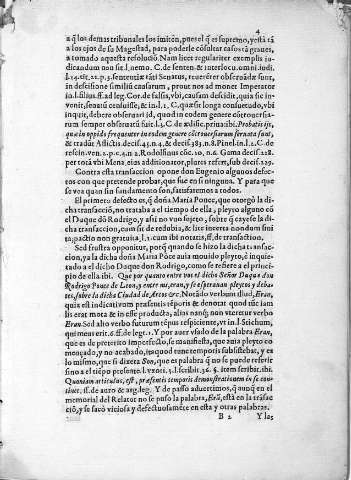 4
a q̃ los demas tribunales los imitẽn, pues el q̃ es supremo, y està tã
a los ojos de su Magestad, para poderle cõsultar casos tã graues,
a tomado aquesta resoluciõ. Nam licet regulariter exemplis iu-
dicandum non sit l. nemo. C. de senten & interlocu. omni. iudi.
l. 14. tit. 22. p. 3. sententiæ tãti Senatus, reuerẽter obseruãdæ sunt,
in decisione similiũ causarum, prout nos ad monet Imperator
in l. filius. ff. ad leg. Cor. de falsis, vbi, causam decidit, quia sic in-
venit, senatũ censuisse, & in. l. 1. C. quæ sit longa consuetudo, vbi
inquit, debere obseruari id, quod in eodem genere cõtrouersia-
rum semper obseruatũ fuit. l. j. C. de ædific. priua. ibi. Probatis ijs,
quæ in oppido frequenter in eodem genere cõtrouersiarum seruata sunt,
& tradũt Aflictis decisi. 45. n. 4. & decis. 383. n. 8. Pinel. in. l. 2. C. de
rescin. ven. 2. p. c. 4. n. 2. Rodolfinus cõc. 10. n. 6. Gama decis. 228.
per totã vbi Mena, eius additionator, plures refert, sub decis. 329.
Contra esta transaccion opone don Eugenio algunos defec-
tos con que pretende probar, que fue en si ninguna. Y para que se
vea quan sin fundamento son, satisfaremos a todos.
El primero defecto es, q̃ doña Maria Ponce, que otorgò la di-
cha transacciõ, no trataba a el tiempo de ella, pleyto alguno cõ
el Duque dõ Rodrigo, y assi no vuo sujeto, sobre q̃ cayesse la di-
cha transaccion, cum sit de re dubia, & lite incerta non dum fini-
ta, pactio non gratuita, l. 1. cum ibi notatis, ff. de transaction.
Sed frustra opponitur, porq̃ quando se hizo la dicha transac-
cion, ya la dicha doña Maria Põce auia mouido pleyto, è inquie-
tado a el dicho Duque don Rodrigo, como se refiere a el princi-
pio de ella ibi. Que por quanto entre vos el dicho Señor Duque don
Rodrigo Ponce de Leon, y entre mi, eran, y se esperauan pleytos y deba-
tes, sobre la dicha Ciudad de Arcos &c. Notãdo verbum illud, Eran,
quia est indicatiuum præsentis tẽporis & denotat quod iàc iam
lis erat mota & in esse producta, alias nanq̃; non vteretur verbo
Eran. Sed alio verbo futurum tẽpus respiciente, vt in. l. Stichum,
qui meus erit. 6. ff. de leg. 1. Y por auer vsado de la palabra Eran,
que es de preterito imperfecto, se manifiesta, que auia pleyto co
mouçado, y no acabado, ita quod tunc temporis subsistebat, y es
lo mismo, que si dixera Son, que es palabra q̃ no se puede referir
sino a el tiẽpo presente. l. vxori. 5. l. scribit. 36. §. item scribit. ibi.
Quoniam articulus, est, præsentis temporis demonstrationem in se con-
tinet. ff. de auro & arg. leg. Y de passo aduertimos, q̃ aunq̃ en el
memorial del Relator no se puso la palabra, Erã, està en la trãsac
ciõ, y se sacò viciosa y defectuosamẽte en esta y otras palabras.
B 2 Y las